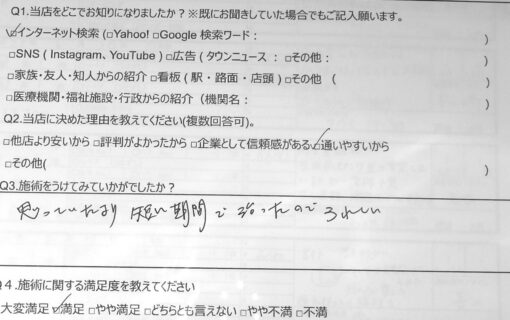 Q1.当店をどこでお知りになりましたか？※既にお聞きしていた場合でもご記入願います。
☑インターネット検索 (□Yahoo! □Google 検索ワード： )
□SNS ( Instagram、YouTube ) □広告 ( タウンニュース ： □その他： )
□家族・友人・知人からの紹介 □看板 ( 駅・路面・店頭 ) □その他 ( )
□医療機関・福祉施設・行政からの紹介 (機関名： )
Q2.当店に決めた理由を教えてください(複数回答可)。
□他店より安いから □評判がよかったから □企業として信頼感がある ☑通いやすいから
□その他( )
Q3.施術をうけてみていかがでしたか？
思っていたより 短い期間で治ったので うれしい
Q４.施術に関する満足度を教えてください
大変満足 ☑満足 □やや満足 □どちらとも言えない □やや不満 □不満